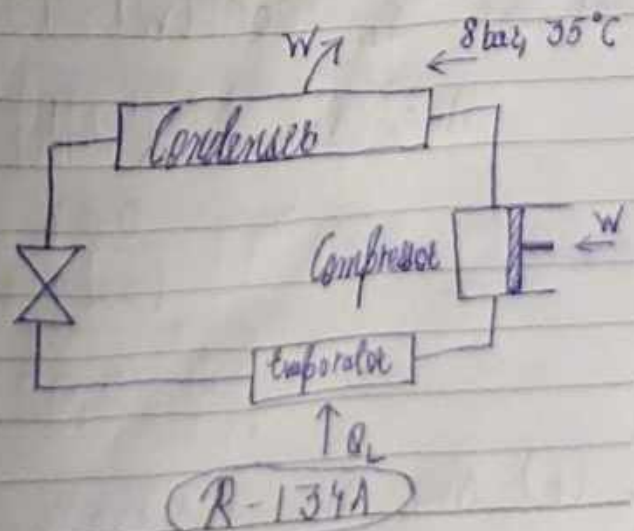 W ← 8 bar, 35°C
Condenser
Compressor
← W
Evaporator
↑ QL
R-134A